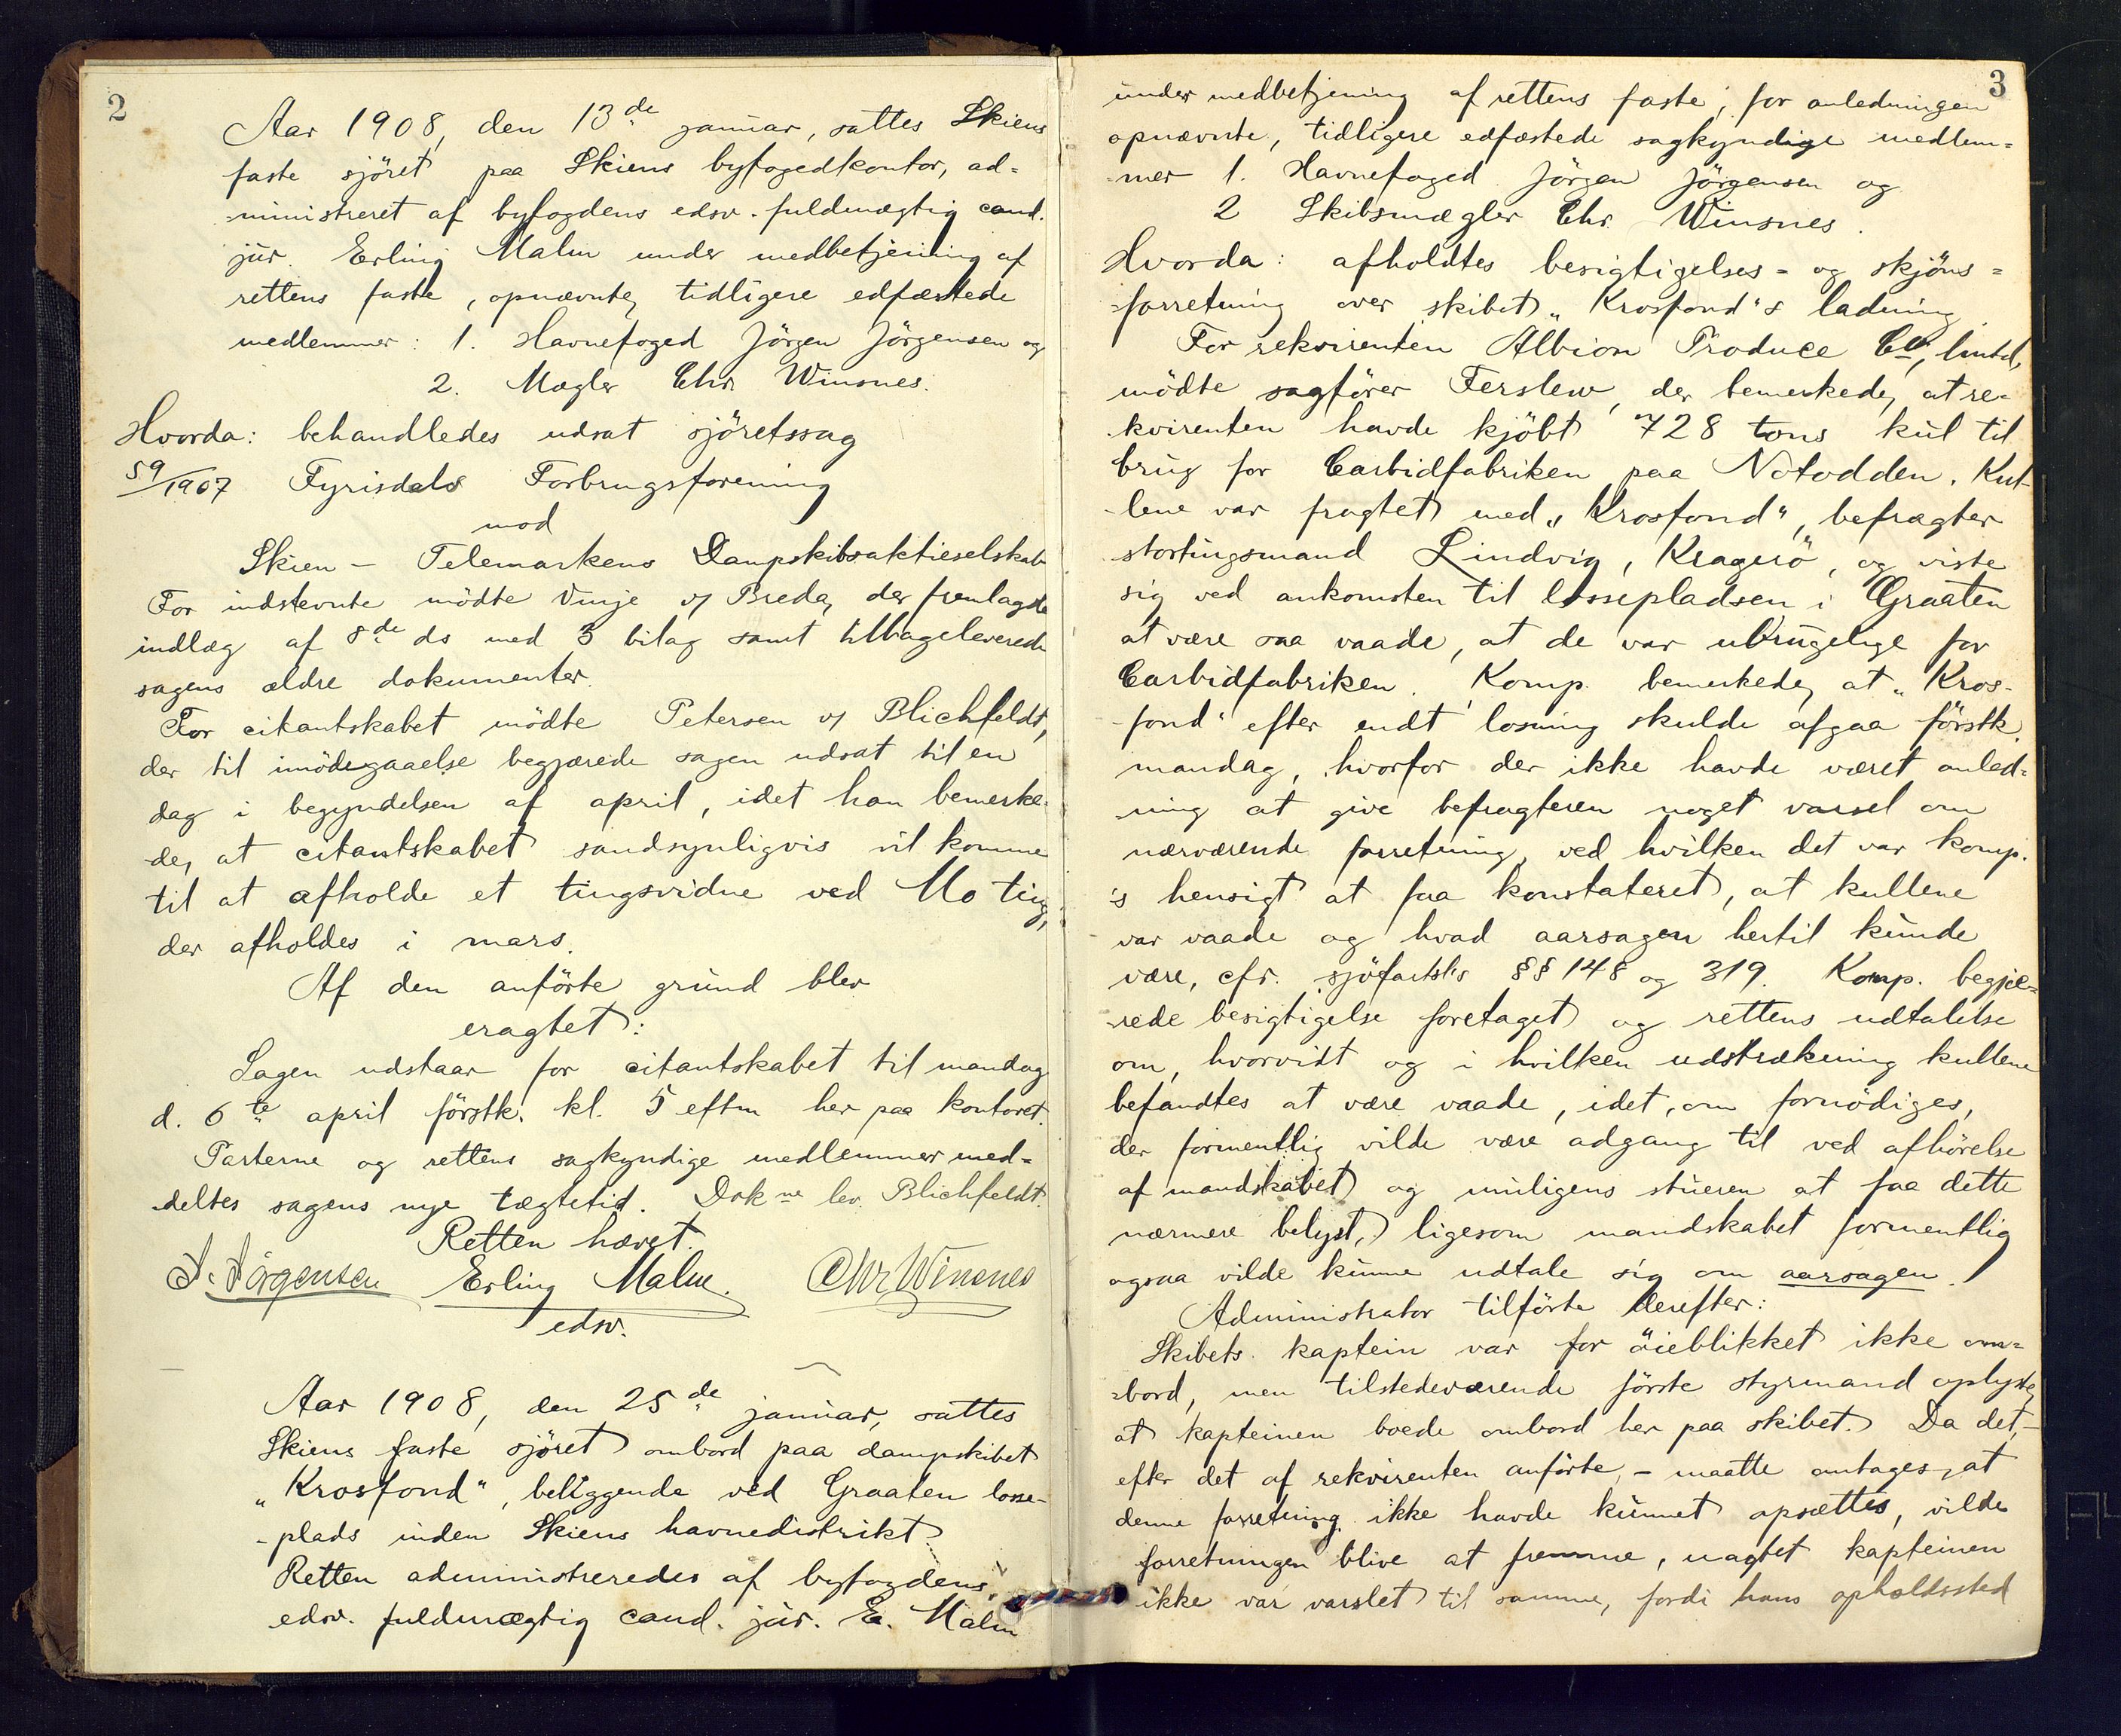 2
Aar 1908, den 13de januar, sattes Skiens
faste sjöret paa Skiens byfogedkontor, ad=
ministreret af byfogdens edsv. fuldmægtig cand.
jur. Erling Malm under medbetjening af
rettens faste, opnævnte, tidligere edfæstede
medlemmer: 1. Havnefoged Jörgen Jörgensen og
2. Mægler Chr. Winsnes.
Hvorda: behandledes udsat sjöretssag
59/1907 Fyrisdals Forbrugsforening
mod
Skien - Telemarkens Dampskibsaktieselskab
For indstevnte mödte Vinje v/ Breda, der fremlagde
indlæg af 8de ds med 3 bilag samt tilbageleverede
sagens ældre dokumenter.
For citantskabet mödte Petersen v/ Blichfeldt,
der til imödegaaelse begjærede sagen udsat til en
dag i begyndelsen af april, idet han bemerke=
de, at citantskabet sandsynligvis vil komme
til at afholde et tingsvidne ved Mo ting,
der afholdes i mars.
Af den anförte grund blev
eragtet:
Sagen udstaar for citantskabet til mandag
d. 6te april förstk. kl. 5 eftm her paa kontoret.
Parterne og rettens sagkyndige medlemmer med=
deltes sagens nye tægtetid. Dokne lev. Blichfeldt.
Retten hævet.
J. Jörgensen Erling Malm. Chr Winsnes
edsv.
Aar 1908, den 25de januar, sattes
Skiens faste sjöret ombord paa dampskibet
"Krosfond", beliggende ved Graaten losse-
plads inden Skiens havnedistrikt.
Retten administreredes af byfogdens
edsv. fuldmægtig cand. jur. E. Malm
3
under medbetjening af rettens faste, for anledningen
opnævnte, tidligere edfæstede sagkyndige medlem=
mer 1. Havnefoged Jörgen Jörgensen og
2 Skibsmægler Chr. Winsnes.
Hvorda: afholdtes besigtigelses- og skjöns=
forretning over skibet "Krosfond"s ladning.
For rekvirenten Albion Produce Co, limtd,
mödte sagförer Ferslew, der bemerkede, at re-
kvirenten havde kjöbt 728 tons kul til
brug for Carbidfabriken paa Notodden. Kul-
lene var fragtet med "Krosfond", befragter
stortingsmand Lindvig, Kragerö, og viste
sig ved ankomsten til lossepladsen i Graaten
at være saa vaade, at de var ubrugelige for
Carbidfabriken. Komp. bemerkede, at "Kros-
fond" efter endt losning skulde afgaa förstk.
mandag, hvorfor der ikke havde været anled=
ning at give befragteren noget varsel om
nærværende forretning, ved hvilken det var komp.
's hensigt at faa konstateret, at kullene
var vaade og hvad aarsagen hertil kunde
være, cfr. sjöfartsl's §§ 148 og 319. Komp. begjæ=
rede besigtigelse foretaget og rettens udtalelse
om, hvorvidt og i hvilken udstrækning kullene
befandtes at være vaade, idet, om fornödiges,
der formentlig vilde være adgang til ved afhörelse
af mandskabet og muligens stueren at faa dette
nærmere belyst, ligesom mandskabet formentlig
ogsaa vilde kunne udtale sig om aarsagen.
Administrator tilförte derefter:
Skibets kaptein var for öieblikket ikke om=
bord, men tilstedeværende förste styrmand oplyste,
at kapteinen boede ombord her paa skibet. Da det, -
efter det af rekvirenten anförte, - maatte antages, at
denne forretning ikke havde kunnet opsættes, vilde
forretningen blive at fremme, uagtet kapteinen
ikke var varslet til samme, fordi hans opholdssted